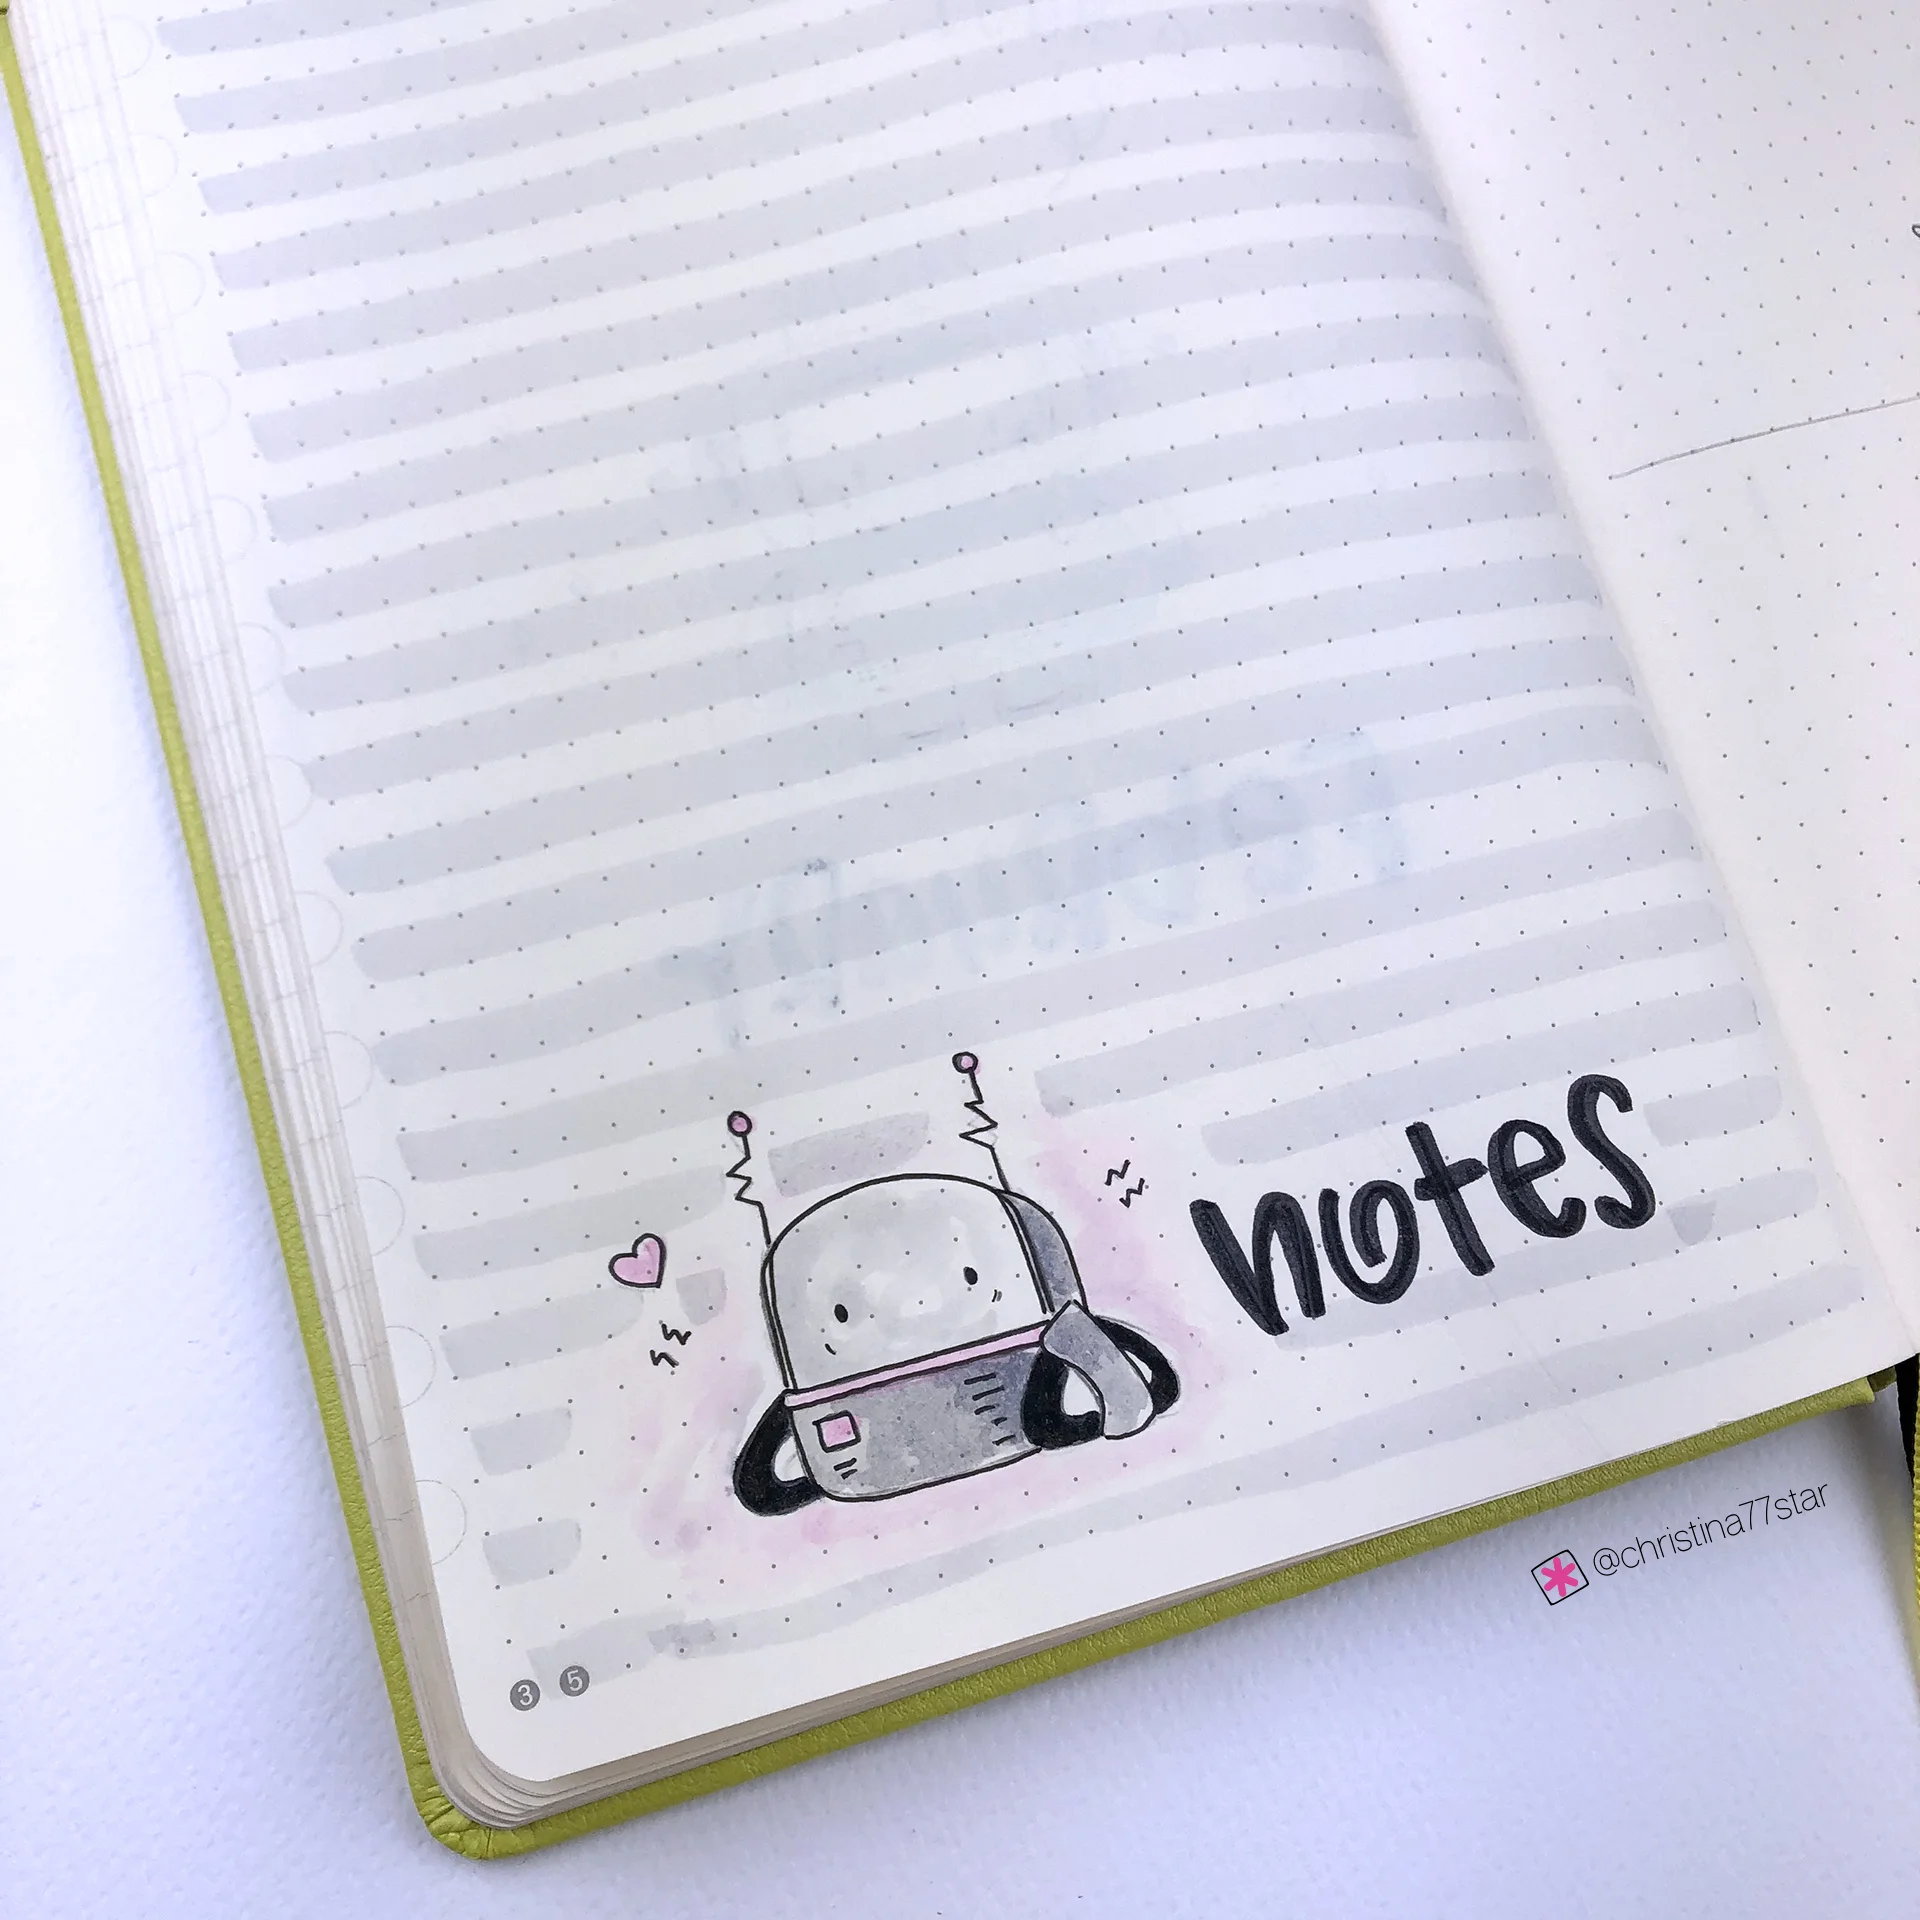 notes
@christina77star
3 5